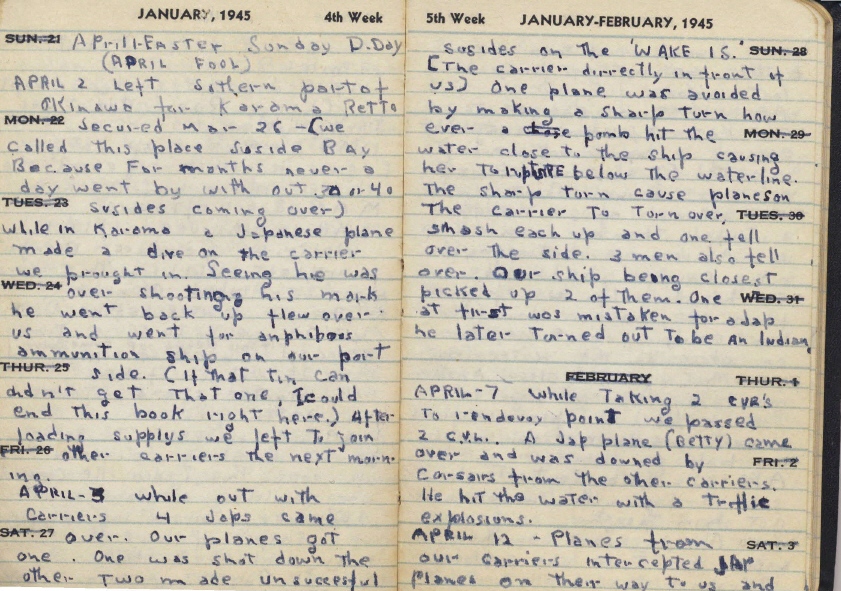 JANUARY, 1945 4th Week
SUN. 21 April 1-Easter Sunday D.Day
(APRIL FOOL)
APRIL 2 Left Sothern part of
Okinawa for Karama Retto
MON. 22 Secured Mar 26 - (we
called this place Suside BAY
Because For months never a
day went by with out or 40
TUES. 23 susides coming over)
while in Karama a Japanese plane
made a dive on the carrier
we brought in. Seeing he was
WED. 24 over shooting his mark
he went back up flew over
us and went for anphibous
ammunition ship on our port
THUR. 25 side. (If that tin can
didn't get that one, I could
end this book right here.) After
loading supplys we left To join
FRI. 26 other carriers the next morn-
ing.
APRIL-3 while out with
Carriers 4 Japs came
SAT. 27 over. Our planes got
one. One was shot down the
other Two made unsuccesful
5th Week JANUARY-FEBRUARY, 1945
susides on the 'WAKE IS.' SUN. 28
[The carrier directly in front of
us) One plane was avoided
by making a sharp turn how
ever a close bomb hit the MON. 29
water close to the ship causing
her To below the waterline.
The sharp turn cause planes on
The carrier To Turn over, TUES. 30
smash each up and one fell
over the side. 3 men also fell
over. Our ship being closest
picked up 2 of them. One WED. 31
at first was mistaken for a Jap
he later Turned out To be an Indian,
FEBRUARY THUR. 1
APRIL-7 while Taking 2 CVE's
To rendevoy point we passed
2 C.V.L. A Jap plane (BETTY) came
over and was downed by FRI. 2
Corsairs from the other carriers.
He hit the water with a Traffic
explosions.
APRIL 12 - Planes from SAT. 3
our carriers intercepted JAP
planes on their way to us and